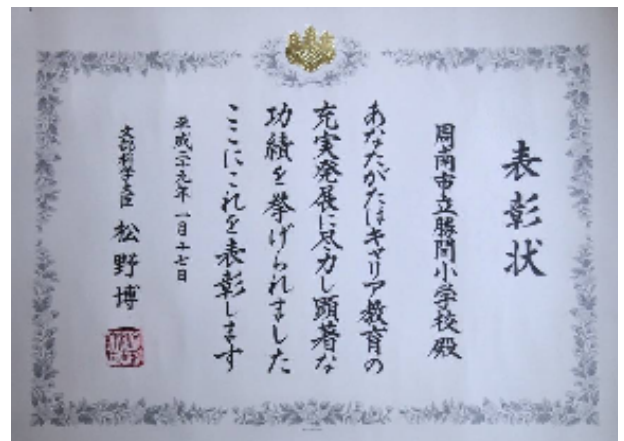 表彰状
周南市立勝間小学校殿
あなたがたはキャリア教育の
充実発展に尽力し顕著な
功績を挙げられました
ここにこれを表彰します
平成二十九年一月十七日
文部科学大臣 松野博